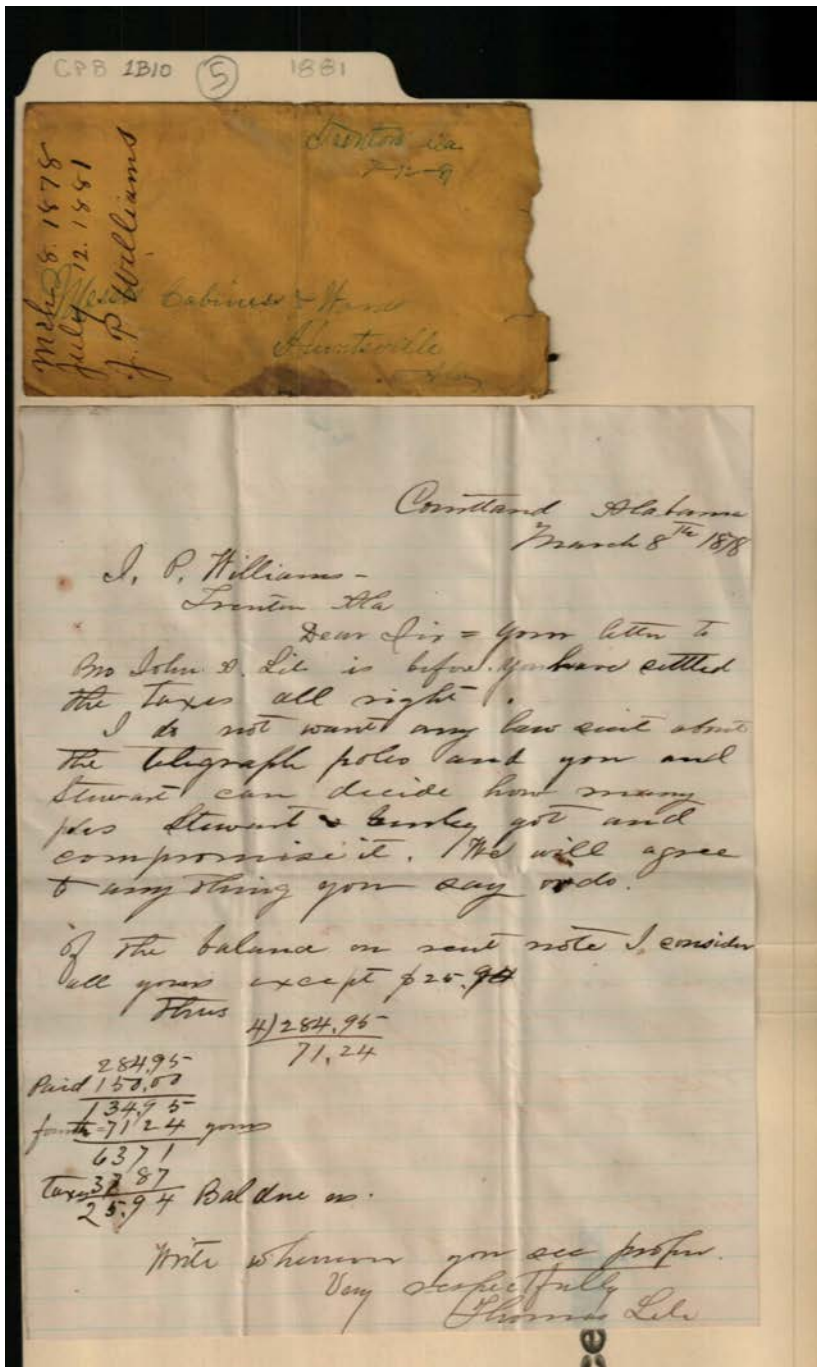 CPB 1B10 5 1881
Trenton ala
7-12-81
Mch. 8. 1878
July 12. 1881
J. P Williams
Mess Cabiness & Ward
Huntsville
Ala
Courtland Alabama
March 8th 1878
I. P. Williams -
Trenton Ala
Dear Sir = Your letter to
Bro John A. Lile is before. You have settled
the taxes all right.
I do not want any law suit about
the telegraph poles and you and
Stewart can decide how many
Stewart & got and
compromise it. We will agree
to any thing you say or do.
Of the balance on rent note I consider
all yours except $25.94
Thus 4)284.95
71.24
284.95
Paid 150.00
134.95
fourth = 71 24 yours
63 71
taxes 37 87
25.94 Bal due us.
Write whenever you see proper.
Very respectfully
Thomas Lile
se